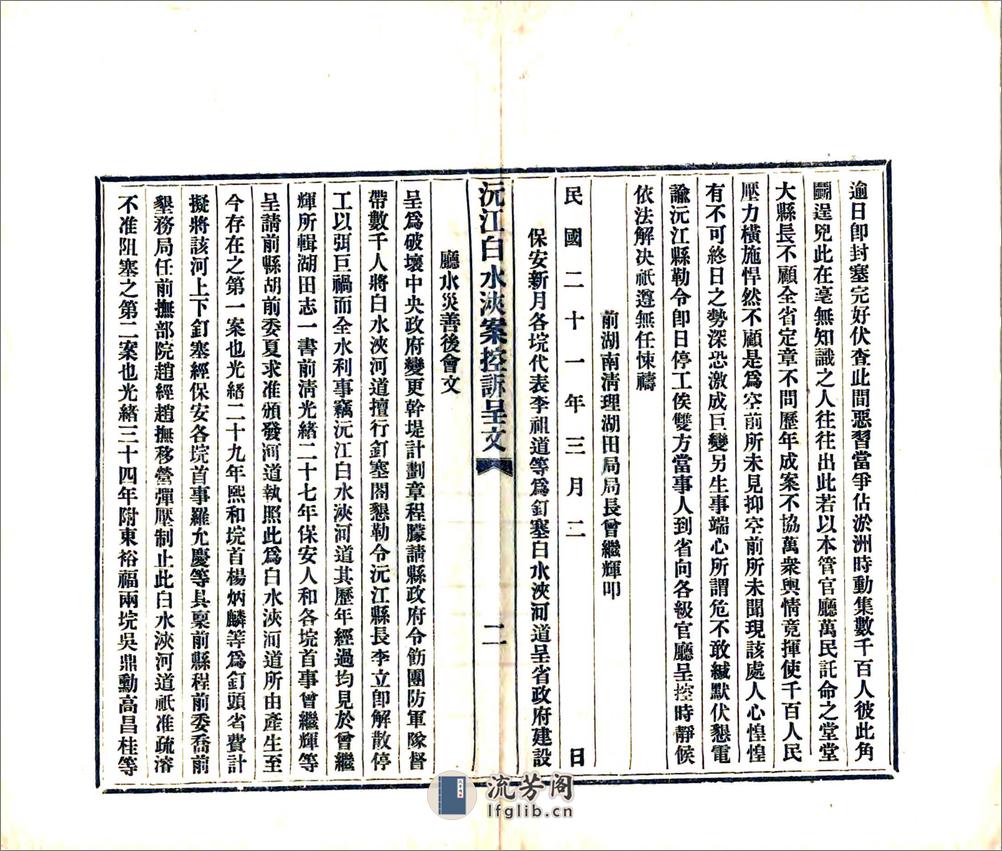 逾日卽封塞完好伏查此間惡習當爭佔淤洲時動集數千百人彼此角
鬭逞兇此在毫無知識之人往往出此若以本管官廳萬民託命之堂堂
大縣長不顧全省定章不問歷年成案不協萬衆輿情竟揮使千百人民
壓力橫施悍然不顧是爲空前所未見抑空前所未聞現該處人心惶惶
有不可終日之勢深恐激成巨變另生事端心所謂危不敢緘默伏懇電
諭沅江縣勒令卽日停工俟雙方當事人到省向各級官廳呈控時靜候
依法解決祇遵無任悚禱
前湖南淸理湖田局局長曾繼輝叩
民國二十一年三月二日
保安新月各垸代表李祖道等爲釘塞白水浹河道呈省政府建設
沅江白水浹案控訴呈文
二
廳水災善後會文
呈爲破壞中央政府變更幹堤計劃章程朦請縣政府令飭團防軍隊督
帶數千人將白水浹河道擅行釘塞閤懇勒令沅江縣長李立卽解散停
工以弭巨禍而全水利事竊沅江白水浹河道其歷年經過均見於曾繼
輝所輯湖田志一書前淸光緒二十七年保安人和各垸首事曾繼輝等
呈請前縣胡前委夏求准頒發河道執照此爲白水浹河道所由產生至
今存在之第一案也光緒二十九年熙和垸首楊炳麟等爲釘頭省費計
擬將該河上下釘塞經保安各垸首事羅允慶等具稟前縣程前委喬前
墾務局任前撫部院趙經趙撫移營彈壓制止此白水浹河道祇准疏濬
不准阻塞之第二案也光緒三十四年附東裕福兩垸吳鼎勳高昌桂等
流芳阁
lfglib.cn